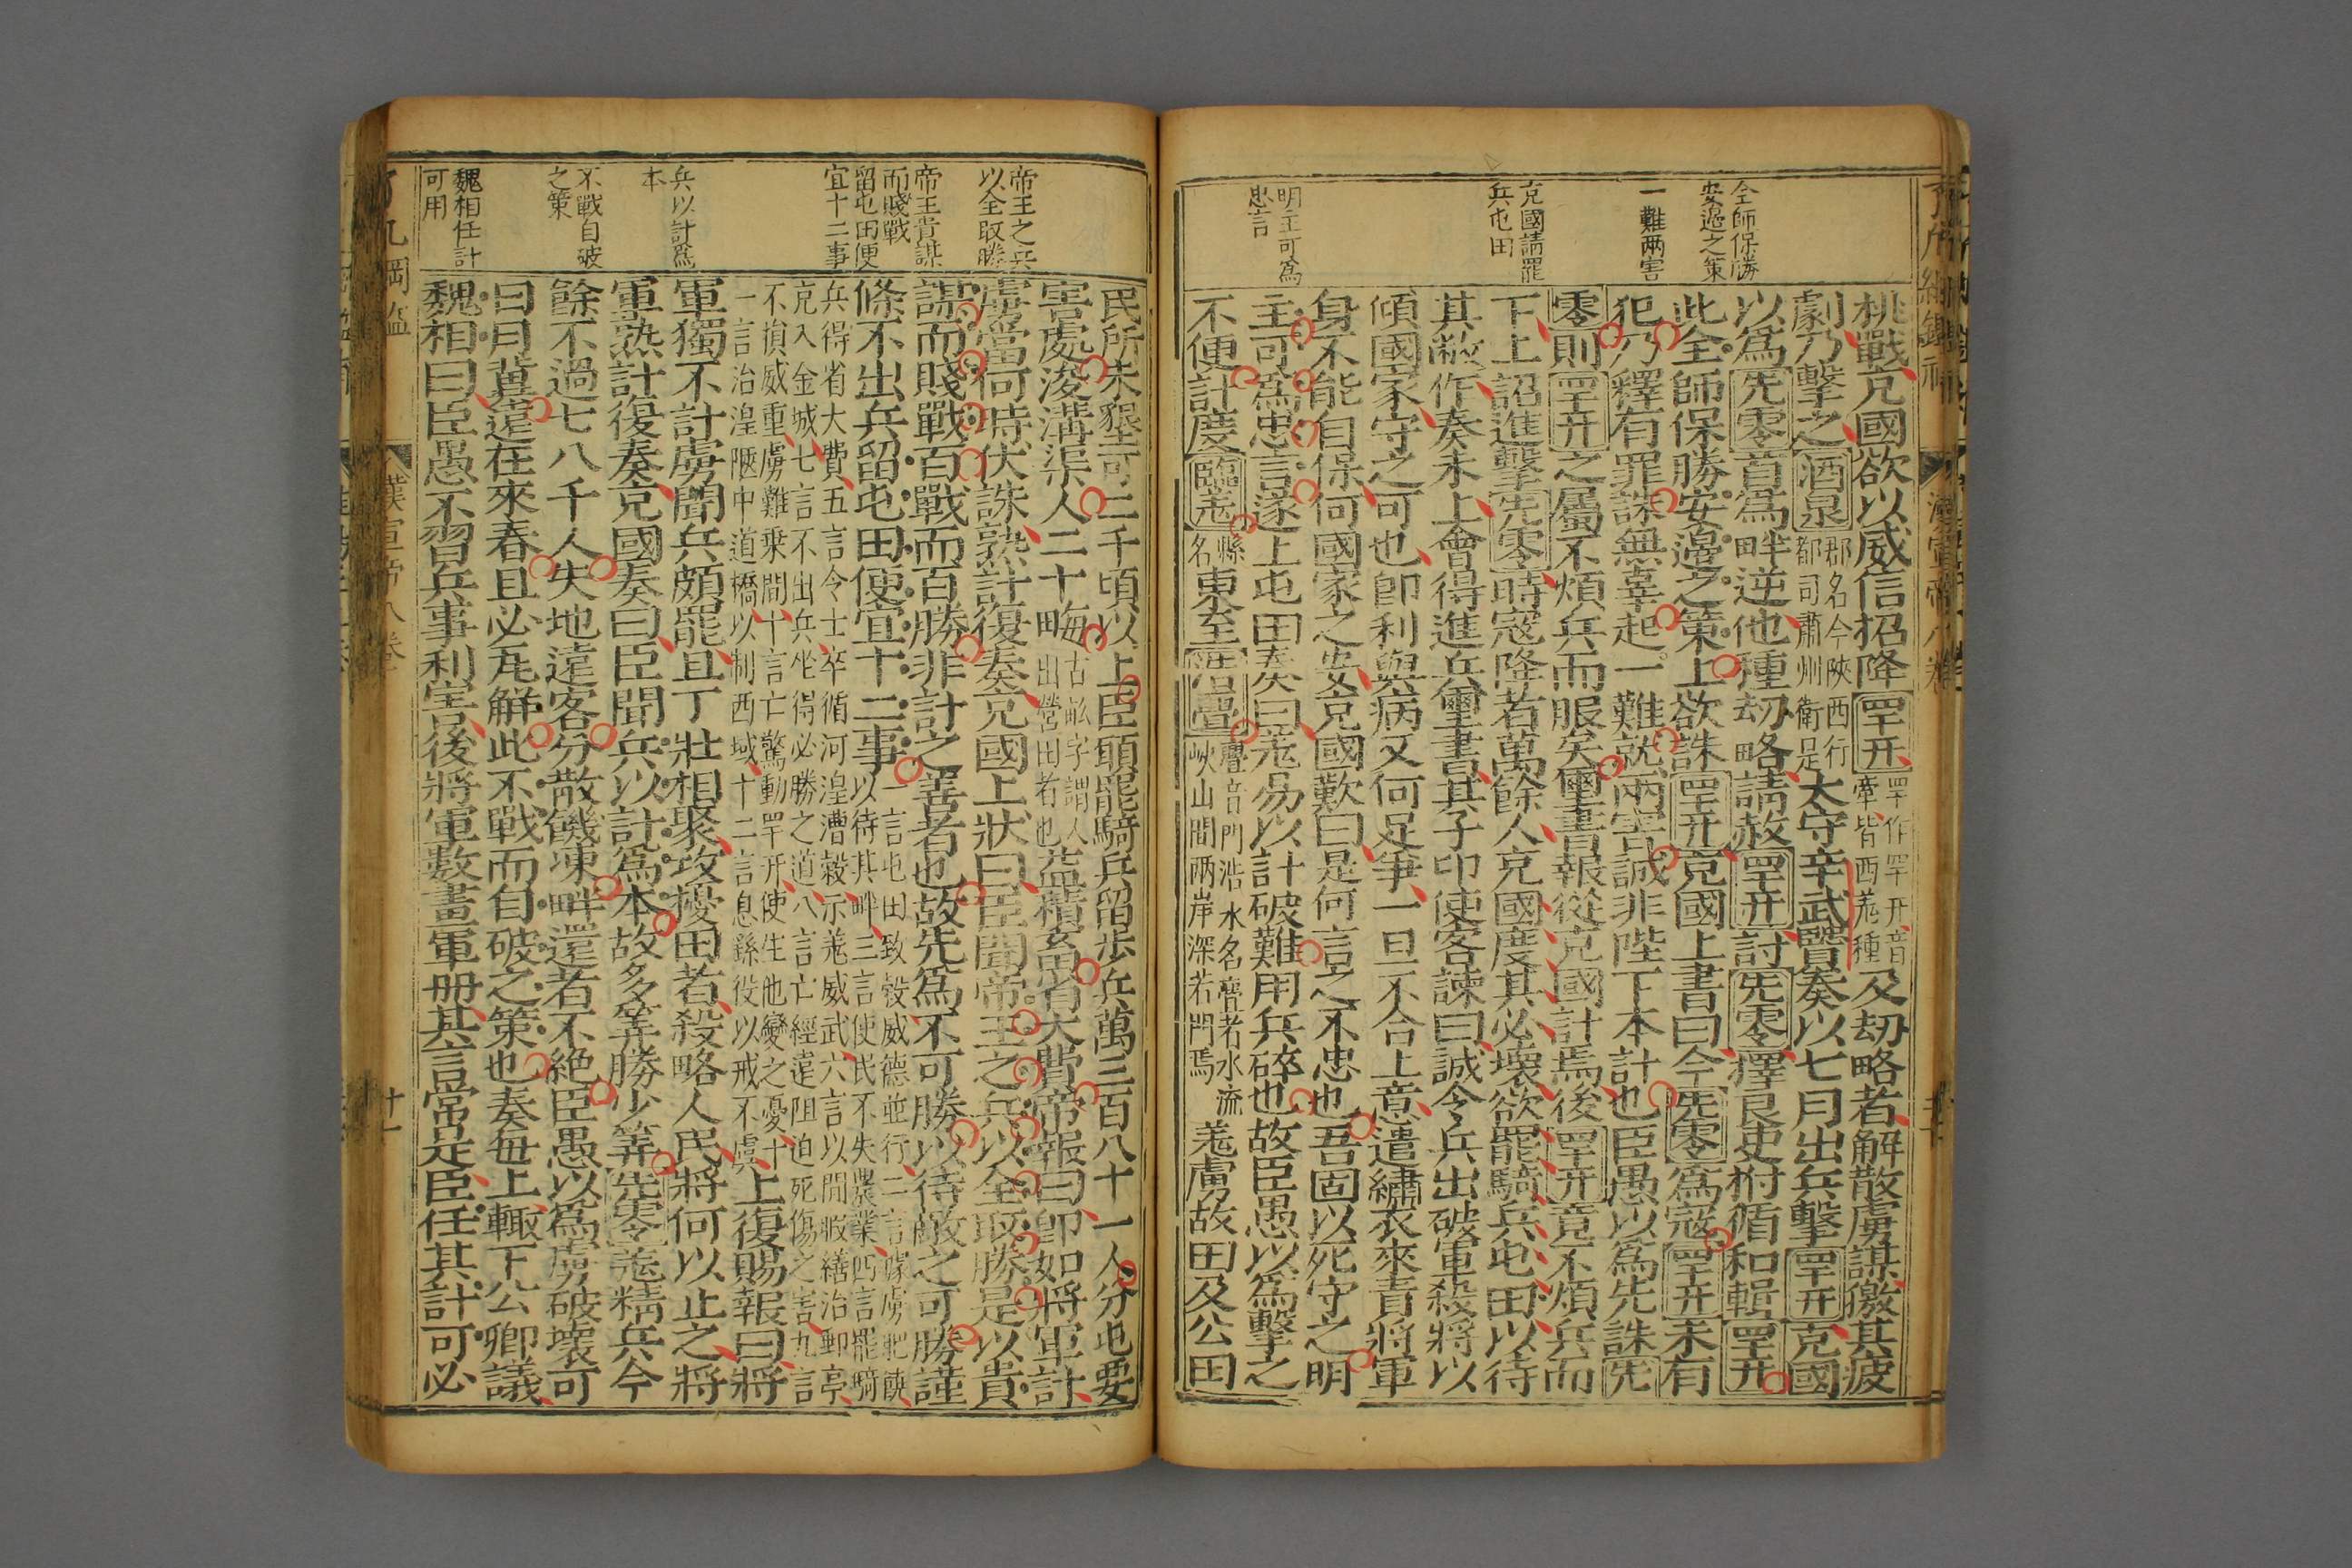 全師保勝
安邊之策
一難兩害
充國請罷
兵屯田
明主可爲
忠言
挑戰充國欲以威信招降罕幵罕作䍐幵音牽皆西羌種及劫略者解散虜謀徼其疲
劇乃擊之酒泉郡名今陝西行都司肅州衛是太守辛武賢奏以七月出兵擊罕幵充國
以爲先零首爲畔逆他種劫略請赦罕幵討先零擇良吏拊循和輯罕幵
此全師保勝安邊之策上欲誅罕幵充國上書曰今先零爲寇罕幵未有
犯乃釋有罪誅無辜起一難就兩害誠非陛下本計也臣愚以爲先誅先
零則罕幵之屬不煩兵而服矣璽書報從充國計焉後罕幵竟不煩兵而
下上詔進擊先零時寇降者萬餘人充國度其必壞欲罷騎兵屯田以待
其敝作奏未上會得進兵璽書其子卬使客諫曰誠令兵出破軍殺將以
傾國家守之可也卽利與病又何足爭一旦不合上意遣繡衣來責將軍
身不能自保何國家之安充國歎曰是何言之不忠也吾固以死守之明
主可爲忠言遂上屯田奏曰羌易以計破難用兵碎也故臣愚以爲擊之
不便計度臨羌縣名東至浩亹亹音門浩水名亹者水流峽山間兩岸深若門焉羌虜故田及公田
帝王之兵
以全取勝
帝王貴謀
而賤戰
留屯田便
宜十二事
兵以計爲
本
不戰自破
之策
魏相任計
可用
民所未墾可二千頃以上臣願罷騎兵留步兵萬三百八十一人分屯要
害處浚溝渠人二十畮古畝字謂人出營田若也益積畜省大費帝報曰卽如將軍計
虜當何時伏誅熟計復奏充國上狀曰臣聞帝王之兵以全取勝是以貴
謀而賤戰百戰而百勝非計之善者也故先爲不可勝以待敵之可勝謹
條不出兵留屯田便宜十二事一言屯田致穀威德並行二言㨿虜肥饒以待其畔三言使民不失農業四言罷騎
兵得省大費五言令士卒循河湟漕穀示羌威武六言以閒暇繕治郵亭充入金城七言不出兵坐得必勝之道八言亡經遠阻迫死傷之害九言
不損威重虜難乗間十言亡驚動罕幵使生他變之憂十一言治湟陿中道橋以制西域十二言息繇役以戒不虞上復賜報曰將
軍獨不計虜聞兵頗罷且丁壯相聚攻擾田者殺略人民將何以止之將
軍熟計復奏充國奏曰臣聞兵以計爲本故多筭勝少筭先零羌精兵今
餘不過七八千人失地遠客分散饑凍畔還者不絶臣愚以爲虜破壞可
日月冀遠在來春且必瓦解此不戰而自破之策也奏每上輙下公卿議
魏相曰臣愚不習兵事利害後將軍數畫軍冊其言常是臣任其計可必
了凡綱鑑
漢宣帝八卷
十一